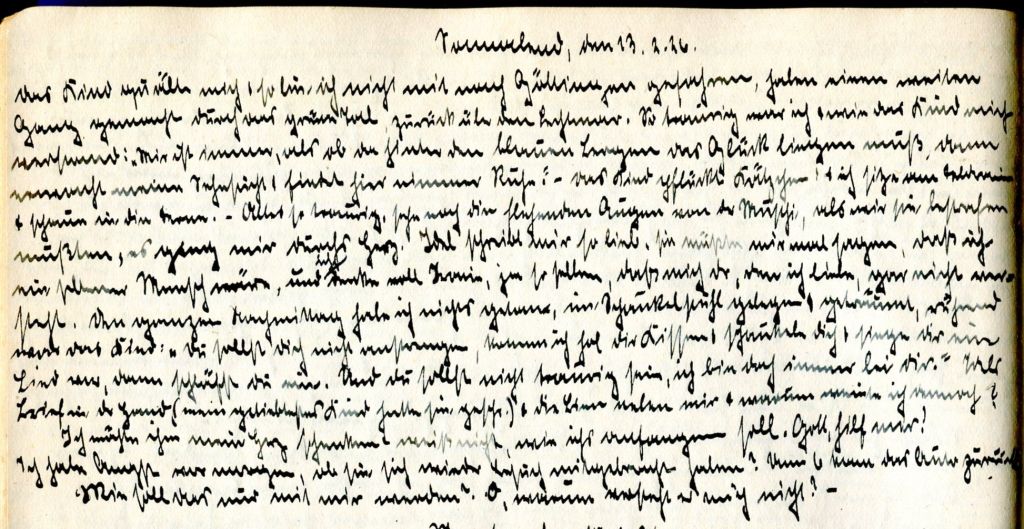 Sonnabend, den 13. 2. 26.
das Kind quälte mich & so bin ich nicht mit nach Göttingen gefahren, haben einen weiten
Gang gemacht durch das grüne Tal, zurück über den . So traurig war ich & wie das Kind mich
verstand: „Mir ist immer, als ob da hinter den blauen Bergen das Glück liegen muß, dann
erwacht meine Sehnsucht & findet hier nimmer Ruhe." – das Kind pflückte Kätzchen & ich sitze am Feldrain
& schaue in die Ferne. – Alles so traurig, sehe noch die flehenden Augen von der Muschi, als wir sie bestrafen
mußten, es ging mir durchs Herz. Idel schreibt mir so lieb, sie müßte mir mal sagen, daß ich
ein seltener Mensch wäre, und ich denke voll Ironie, ja so selten, daß mich der, den ich liebe, gar nicht ver-
steht. Den ganzen Nachmittag habe ich nichts getan, im Schaukelstuhl gelegen & geträumt, rührend
war das Kind: „Du sollst dich nicht anstrengen, komm ich hol dir Kissen & schaukele dich & singe dir ein
Lied vor, dann schläfst du ein. Und du sollst nicht traurig sein, ich bin doch immer bei dir." Idels
Brief in der Hand (mein geliebtestes Kind hatte sie geschr.) & die Lieben neben mir & warum weinte ich dennoch?
Ich möchte ihm mein Herz schenken & weiß nicht, wie ichs anfangen soll. Gott, hilf mir!
Ich habe Angst vor morgen, ob sie sich wieder Besuch mitgebracht haben? Um 6 kam das Auto zurück
Wie soll das nur mit mir werden? O, warum versteht er mich nicht? –